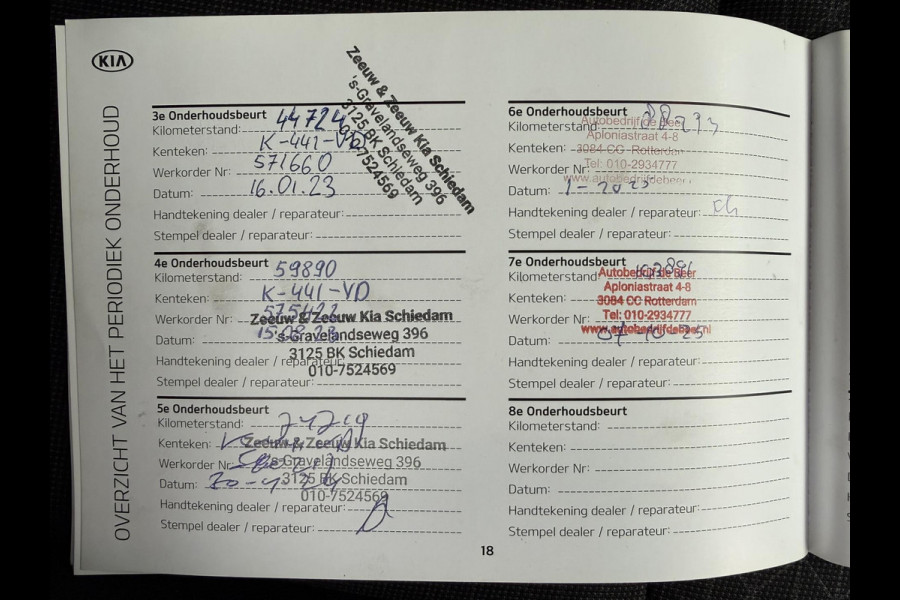 KIA
OVERZICHT VAN HET PERIODIEK ONDERHOUD
3e Onderhoudsbeurt
Kilometerstand: 44724
Kenteken: K-441-VD
Werkorder Nr: 571660
Datum: 16.01.23
Handtekening dealer / reparateur:
Stempel dealer / reparateur:
Zeeuw & Zeeuw Kia Schiedam
's-Gravelandseweg 396
3125 BK Schiedam
010-7524569
4e Onderhoudsbeurt
Kilometerstand: 59890
Kenteken: K-441-VD
Werkorder Nr:
Datum: 15.08.23
Handtekening dealer / reparateur:
Stempel dealer / reparateur:
Zeeuw & Zeeuw Kia Schiedam
's-Gravelandseweg 396
3125 BK Schiedam
010-7524569
5e Onderhoudsbeurt
Kilometerstand:
Kenteken:
Werkorder Nr:
Datum:
Handtekening dealer / reparateur:
Stempel dealer / reparateur:
Zeeuw & Zeeuw Kia Schiedam
's-Gravelandseweg 396
3125 BK Schiedam
010-7524569
6e Onderhoudsbeurt
Kilometerstand:
Kenteken:
Werkorder Nr:
Datum:
Handtekening dealer / reparateur:
Stempel dealer / reparateur:
Autobedrijf de Beer
Aploniastraat 4-8
3084 CC Rotterdam
Tel: 010-2934777
7e Onderhoudsbeurt
Kilometerstand:
Kenteken:
Werkorder Nr:
Datum:
Handtekening dealer / reparateur:
Stempel dealer / reparateur:
Autobedrijf de Beer
Aploniastraat 4-8
3084 CC Rotterdam
Tel: 010-2934777
www.autobedrijfdebeer.nl
8e Onderhoudsbeurt
Kilometerstand:
Kenteken:
Werkorder Nr:
Datum:
Handtekening dealer / reparateur:
Stempel dealer / reparateur:
18